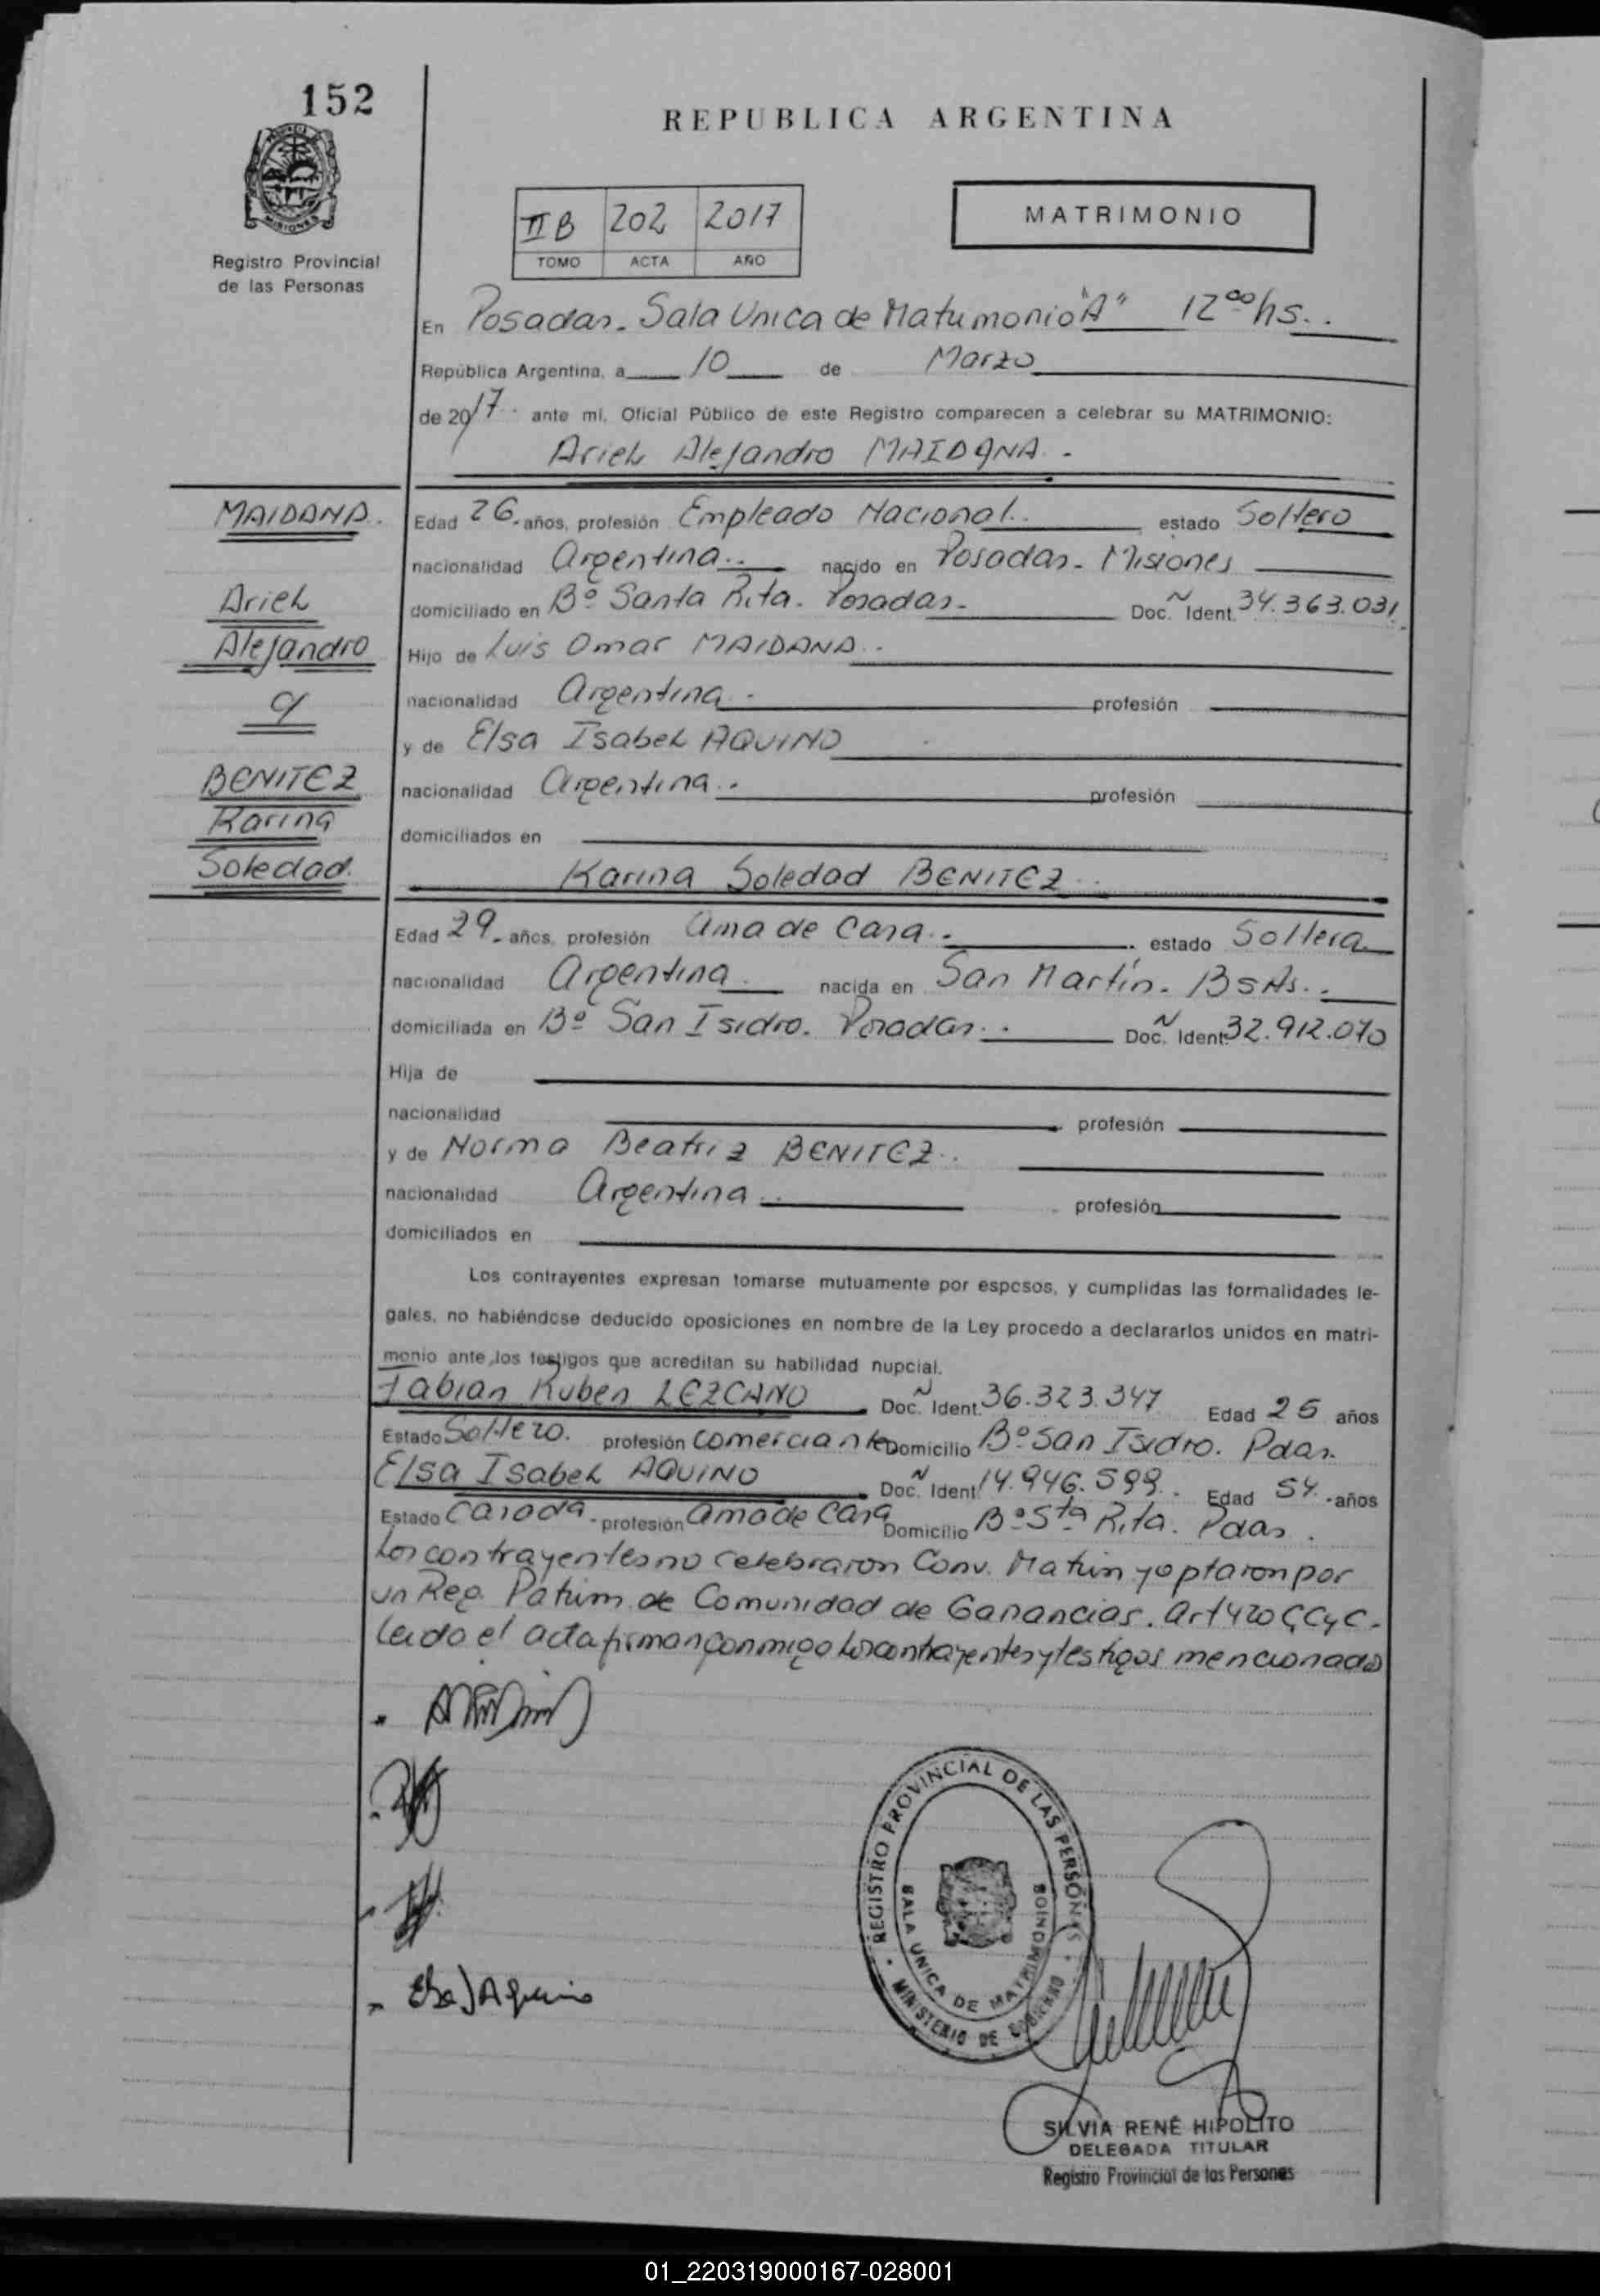 152
REPUBLICA ARGENTINA
II B 202 2017
TOMO ACTA AÑO
MATRIMONIO
Registro Provincial
de las Personas
En Posadas. Sala Unica de Matrimonio "A" 12 00 hs..
República Argentina, a 10 de Marzo
de 2017. ante mí, Oficial Público de este Registro comparecen a celebrar su MATRIMONIO:
Ariel Alejandro MAIDANA.-
MAIDANA.
Ariel
Alejandro
q
BENITEZ
Karina
Soledad.
Edad 26. años, profesión Empleado Nacional.. estado Soltero
nacionalidad Argentina.. nacido en Posadas. Misiones
domiciliado en Bº Santa Rita. Posadas. Doc. Ñ Ident. 34.363.031.
Hijo de Luis Omar MAIDANA..
nacionalidad Argentina.. profesión
y de Elsa Isabel AQUINO
nacionalidad Argentina.. profesión
domiciliados en
Karina Soledad BENITEZ..
Edad 29. años, profesión Ama de Casa.. estado Soltera
nacionalidad Argentina. nacida en San Martín. BsAs..
domiciliada en Bº San Isidro. Posadas.. Doc. Ñ Ident. 32.912.070
Hija de
nacionalidad profesión
y de Norma Beatriz BENITEZ..
nacionalidad Argentina.. profesión
domiciliados en
Los contrayentes expresan tomarse mutuamente por esposos, y cumplidas las formalidades le-
gales, no habiéndose deducido oposiciones en nombre de la Ley procedo a declararlos unidos en matri-
monio ante los testigos que acreditan su habilidad nupcial.
Fabian Ruben LEZCANO Doc. Ñ Ident. 36.323.347 Edad 25 años
Estado Soltero. profesión Comerciante Domicilio Bº San Isidro. Pdas.
Elsa Isabel AQUINO Doc. Ñ Ident. 14.946.599.. Edad 54. años
Estado Casada. profesión Ama de Casa Domicilio Bº Sta Rita. Pdas.
Los contrayentes no celebraron Conv. Matrim y optaron por
un Reg. Patrim de Comunidad de Ganancias. Art 420 CCyC.
Leido el acta firman conmigo los contrayentes y testigos mencionados
Elsa I Aquino
REGISTRO PROVINCIAL DE LAS PERSONAS
SALA UNICA DE MATRIMONIOS
MINISTERIO DE GOBIERNO
SILVIA RENÉ HIPOLITO
DELEGADA TITULAR
Registro Provincial de las Personas
01_220319000167-028001